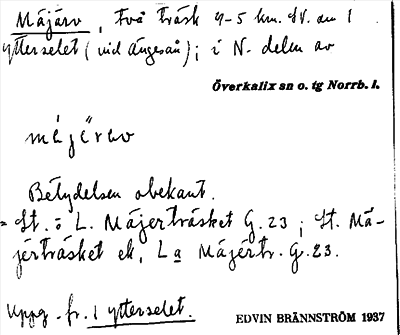 Mäjärv, Två träsk 4-5 km. SV. om 1
ytterselet (vid Ängesån); i N. delen av
Överkalix sn o. tg Norrb. l.
mä́jä̀rav
Betydelsen obekant.
= St. o L. Mäjerträsket G. 23; St. Mä-
jerträsket ek, La Mäjertr. G. 23.
Uppg. fr. 1 ytterselet.
EDVIN BRÄNNSTRÖM 1937